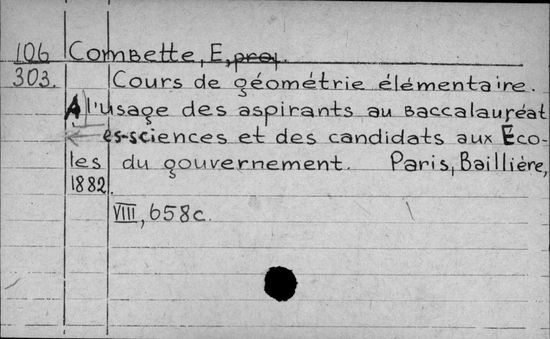 106 Combette, E, prof.
303. Cours de géométrie élémentaire.
A l'usage des aspirants au baccalauréat
ès-sciences et des candidats aux Eco-
les du gouvernement. Paris, Baillière,
1882.
VIII, 658c.